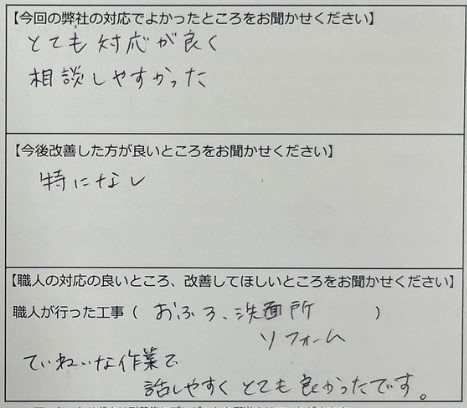 【今回の弊社の対応でよかったところをお聞かせください】
とても対応が良く
相談しやすかった
【今後改善した方が良いところをお聞かせください】
特になし
【職人の対応の良いところ、改善してほしいところをお聞かせください】
職人が行った工事（ おふろ、洗面所 ）
リフォーム
ていねいな作業で
話しやすく とても良かったです。